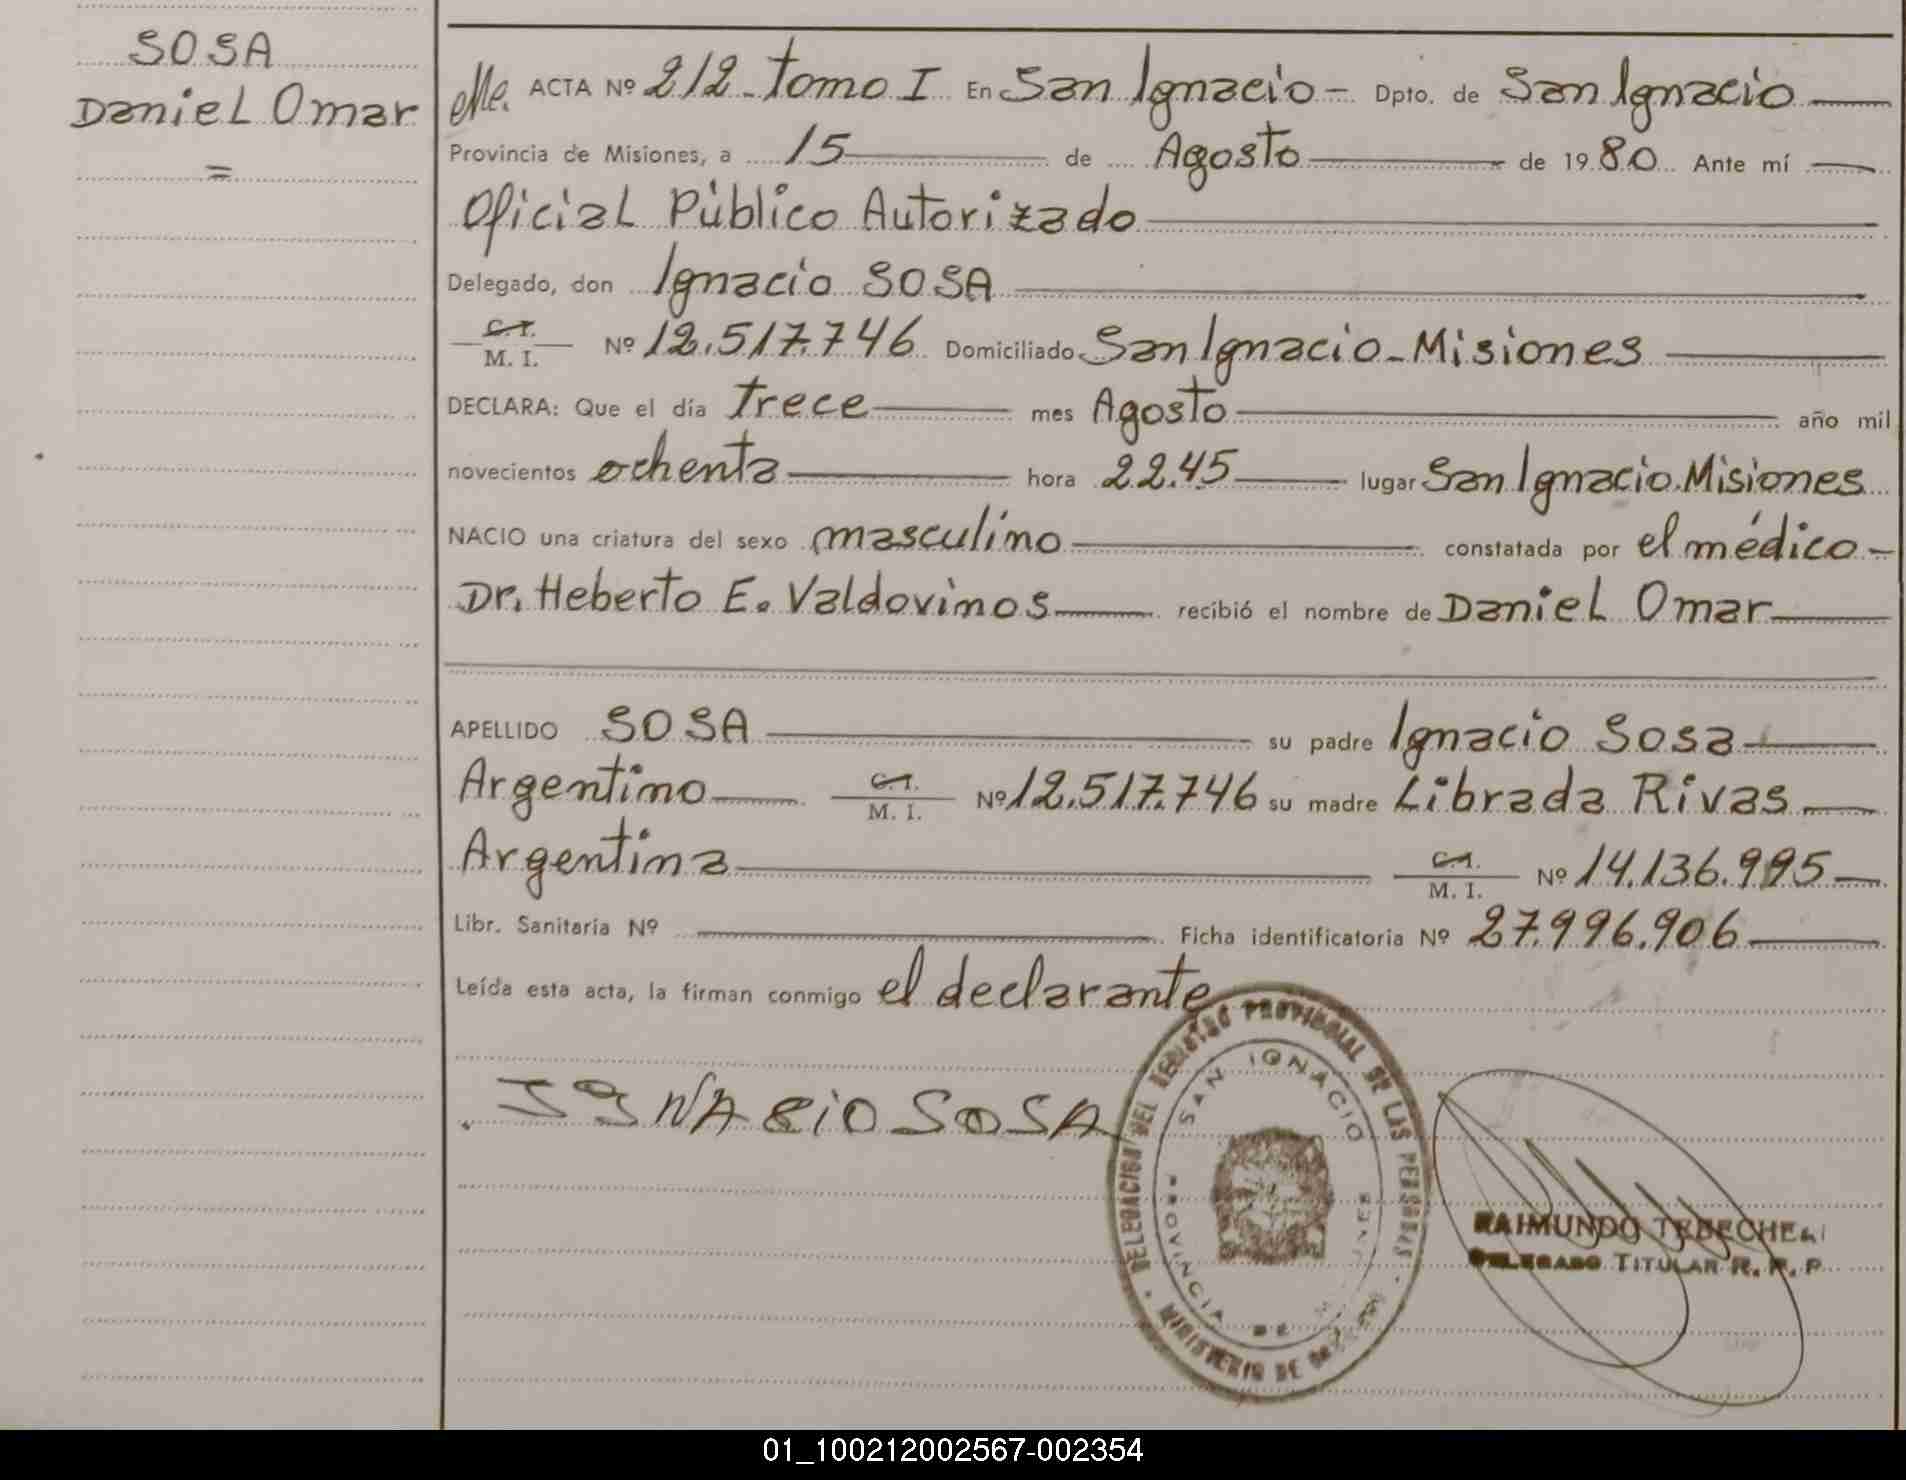 SOSA
Daniel Omar
=
ACTA Nº 212 - Tomo I En San Ignacio - Dpto. de San Ignacio
Provincia de Misiones, a 15 de Agosto de 1980 Ante mí
Oficial Público Autorizado
Delegado, don Ignacio SOSA
C.I. M. I. Nº 12.517.746 Domiciliado San Ignacio - Misiones
DECLARA: Que el día Trece mes Agosto año mil
novecientos ochenta hora 22.45 lugar San Ignacio. Misiones
NACIO una criatura del sexo masculino constatada por el médico -
Dr. Heberto E. Valdovinos recibió el nombre de Daniel Omar
APELLIDO SOSA su padre Ignacio Sosa
Argentino C.I. M. I. Nº 12.517.746 su madre Librada Rivas
Argentina C.I. M. I. Nº 14.136.995
Libr. Sanitaria Nº Ficha identificatoria Nº 27.996.906
Leída esta acta, la firman conmigo el declarante
IGNACIO SOSA
DELEGACION DEL REGISTRO PROVINCIAL DE LAS PERSONAS
SAN IGNACIO
PROVINCIA DE MISIONES
MINISTERIO DE
RAIMUNDO
DELEGADO TITULAR R. P. P.
01_100212002567-002354